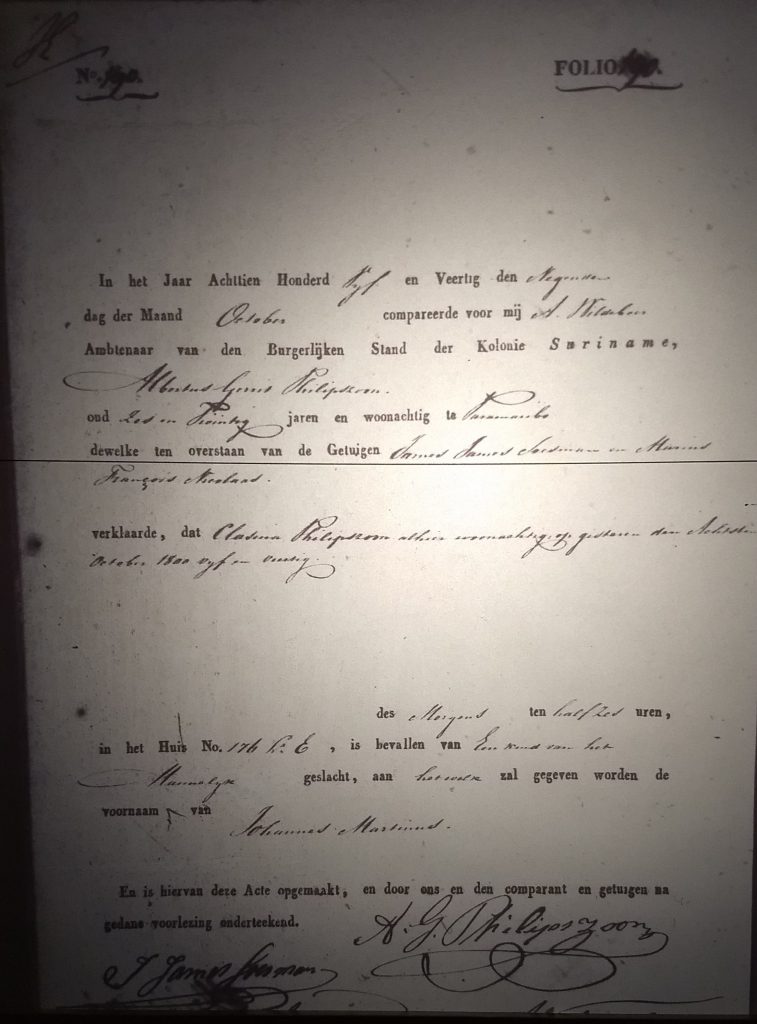 No.
FOLIO
In het Jaar Achttien Honderd Vyf en Veertig den Negenden
dag der Maand October compareerde voor mij A. Wildeboer
Ambtenaar van den Burgerlijken Stand der Kolonie Suriname,
Albertus Gerrit Philipszoon.
oud Zes en Twintig jaren en woonachtig te Paramaribo
dewelke ten overstaan van de Getuigen James James Soesman en Marius
François Nicolaas.
verklaarde, dat Clasina Philipszoon alhier woonachtig, op gisteren den Achtsten
October 1800 vyf en veertig.
des Morgens ten half zes uren,
in het Huis No. 176 Lr. E, is bevallen van Een kind van het
Mannelyk geslacht, aan hetwelk zal gegeven worden de
voornaam van
Johannes Martinus.
En is hiervan deze Acte opgemaakt, en door ons en den comparant en getuigen na
gedane voorlezing onderteekend. A. G. Philipszoon
J James Soesman